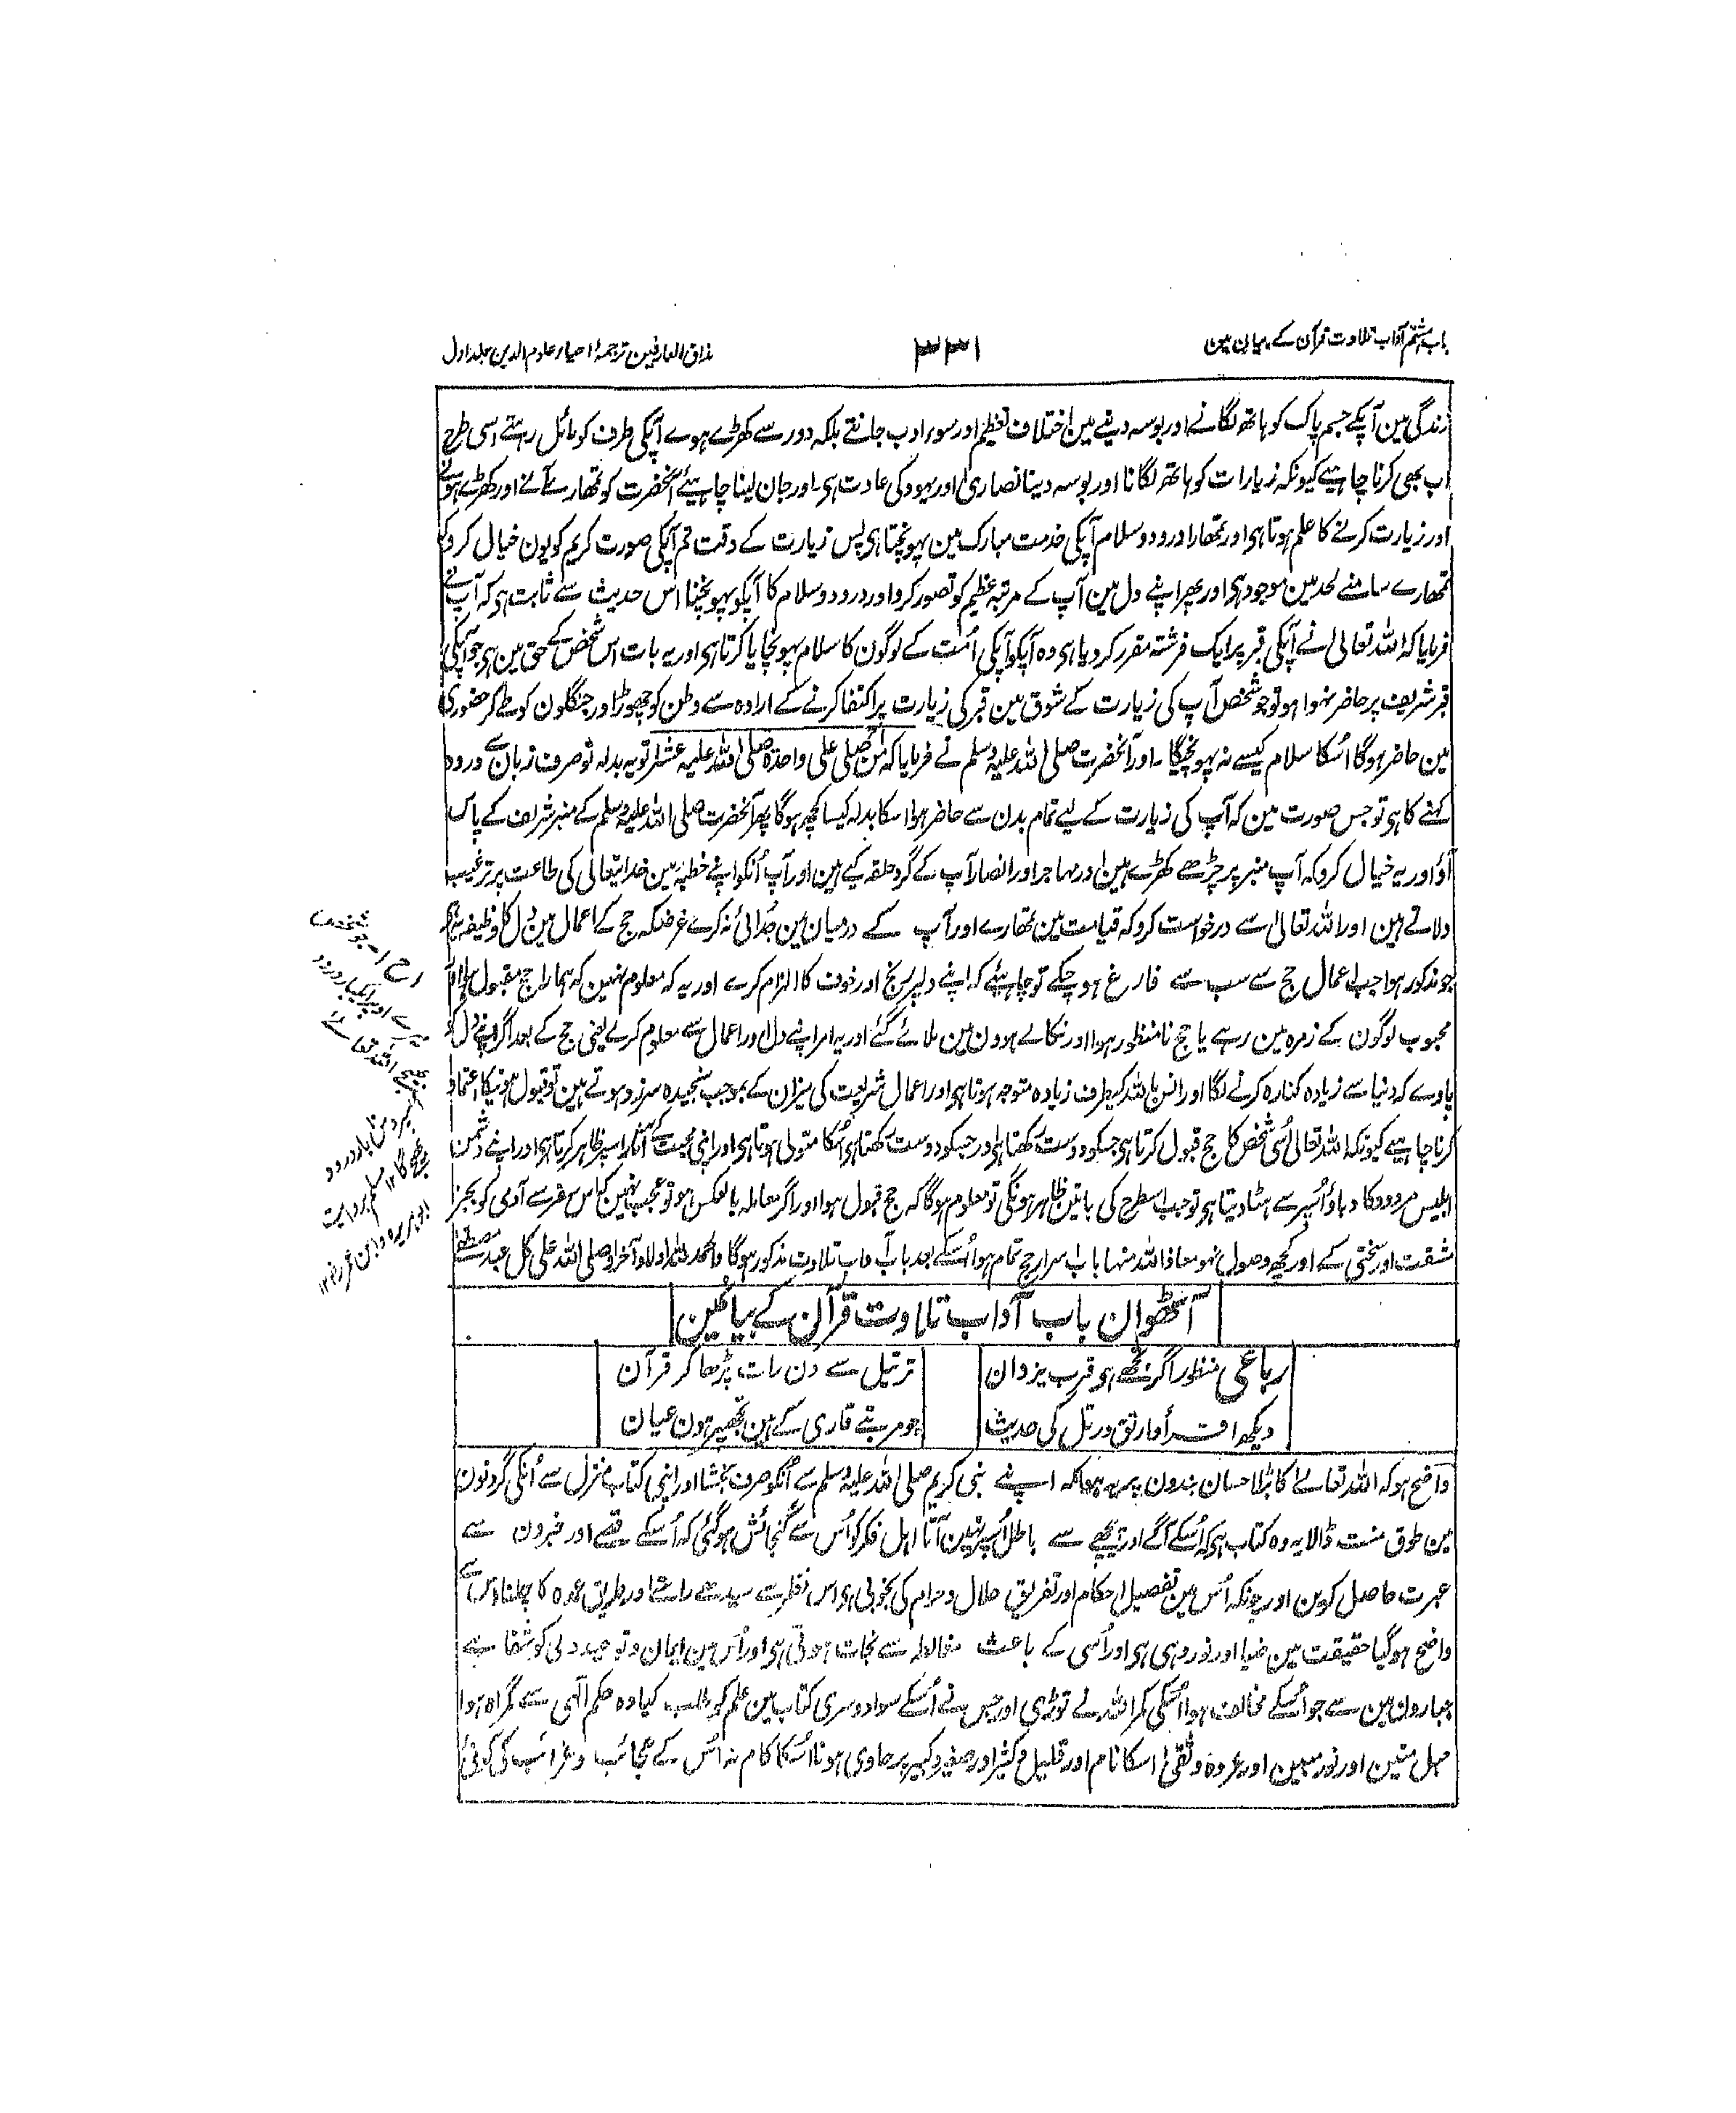 باب ہشتم آداب تلاوت قرآن کے بیان مین
۳۳۱
مذاق العارفین ترجمۂ احیاء علوم الدین جلد اول
زندگی مین آپکے جسم پاک کو ہاتھ لگانے اور بوسہ دینے مین اختلاف تعظیم اور سوء ادب جانتے بلکہ دور سے کھڑے ہوے آپکی طرف کو مائل رہتے اسی طرح
اب بھی کرنا چاہیے کیونکہ زیارات کو ہاتھ لگانا اور بوسہ دینا نصاریٰ اور یہود کی عادت ہی۔ اور جان لینا چاہیئے آنحضرت کو تمھارے آنے اور کھڑے ہونے
اور زیارت کرنے کا علم ہوتا ہی اور تمھارا درود و سلام آپکی خدمت مبارک مین پہونچتا ہی پس زیارت کے وقت تم آپکی صورت کریم کو یون خیال کرو کہ
تمھارے سامنے لحد مین موجود ہی اور پھر اپنے دل مین آپ کے مرتبہ عظیم کو تصور کرو اور درود و سلام کا آپکو پہونچنا اس حدیث سے ثابت ہی کہ آپ نے
فرمایا کہ اللہ تعالی نے آپکی قبر پر ایک فرشتہ مقرر کر دیا ہی وہ آپکو آپکی اُمت کے لوگون کا سلام پہونچایا کرتا ہی اور یہ بات اس شخص کے حق مین ہی جو آپکی
قبر شریف پر حاضر نہوا ہو تو جو شخص آپ کی زیارت کے شوق مین قبر کی زیارت پر اکتفا کرنے کے ارادہ سے وطن کو چھوڑ اور جنگلون کو طے کر حضوری
مین حاضر ہوگا اُسکا سلام کیسے نہ پہونچیگا۔ اور آنحضرت صلی اللہ علیہ وسلم نے فرمایا کہ من صلی علی واحدۃ صلی اللہ علیہ عشرا تو یہ بدلہ تو صرف زبان سے درود
کہنے کا ہی تو جس صورت مین کہ آپ کی زیارت کے لیے تمام بدن سے حاضر ہوا اسکا بدلہ کیسا کچھ ہوگا پھر آنحضرت صلی اللہ علیہ وسلم کے منبر شریف کے پاس
آؤ اور یہ خیال کرو کہ آپ منبر پر چڑھے کھڑے ہین اور مہاجر اور انصار آپ کے گرد حلقہ کیے ہین اور آپ اُنکو اپنے خطبہ مین خدایتعالی کی طاعت پر ترغیب
دلاتے ہین اور اللہ تعالیٰ سے درخواست کرو کہ قیامت مین تمھارے اور آپ کے درمیان مین جُدائی نہ کرے غرضکہ حج کے اعمال مین دل کا وظیفہ یہ ہی
جو مذکور ہوا جب اعمال حج سے سب سے فارغ ہو چکے تو چاہیئے کہ اپنے دلپر رنج اور خوف کا الزام کرے اور یہ کہ معلوم نہین کہ ہمارا حج مقبول ہوا اور
محبوب لوگون کے زمرہ مین رہے یا حج نامنظور ہوا اور نکالے ہوون مین ملائے گئے اور یہ امر اپنے دل اور اعمال سے معلوم کرے یعنی حج کے بعد اگر اپنے دل کو
پاوے کہ دنیا سے زیادہ کنارہ کرنے لگا اور انس باللہ کیطرف زیادہ متوجہ ہوتا ہی اور اعمال شریعت کی میزان کے بموجب سنجیدہ سرزد ہوتے ہین تو قبول ہونیکا اعتماد
کرنا چاہیے کیونکہ اللہ تعالیٰ اُسی شخص کا حج قبول کرتا ہی جسکو دوست رکھتا ہی اور جسکو دوست رکھتا ہی اُسکا متولی ہوتا ہی اور اپنی محبت کے آثار اسپر ظاہر کرتا ہی اور اپنے دشمن
ابلیس مردود کا دباؤ اُسپر سے ہٹا دیتا ہی تو جب اسطرح کی باتین ظاہر ہونگی تو معلوم ہوگا کہ حج قبول ہوا اور اگر معاملہ بالعکس ہو تو عجب نہین کہ اس سفر سے آدمی کو بجز
مشقت اور سختی کے اور کچھ وصول نہو معاذ اللہ منہا باب اسرار حج تمام ہوا اُسکے بعد باب آداب تلاوت مذکور ہوگا والحمد للہ اولا و آخرا وصلی اللہ علی کل عبد مصطفے
آٹھوان باب آداب تلاوت قرآن کے بیا نمین
رباعی منظور اگر تجھے ہو قرب یزدان
ترتیل سے دن رات پڑھا کر قرآن
دیکھ اقرأ وارتق ورتل کی حدیث
جو مرتبے قاری کے ہین تجھپر ہون عیان
واضح ہو کہ اللہ تعالےٰ کا بڑا احسان بندون پر یہ ہوا کہ اپنے نبی کریم صلی اللہ علیہ وسلم سے اُنکو شرف بخشا اور اپنی کتاب منزل سے اُنکی گردنون
مین طوق منت ڈالا یہ وہ کتاب ہی کہ اُسکے آگے اور پیچھے سے باطل اُسپر نہین آتا اہل فکر کو اُس سے گنجائش ہوگئی کہ اُسکے قصے اور خبرون سے
عبرت حاصل کرین اور چونکہ اُس مین تفصیل احکام اور تفریق حلال و حرام کی بخوبی ہی اس نظر سے سیدھے راستے اور طریق عمدہ کا چلنا اس سے
واضح ہوگیا حقیقت مین ضیا اور نور وہی ہی اور اُسی کے باعث مغالطہ سے نجات ہوتی ہی اور اُس مین ایمان و توحید دلی کو شفا ہے
جبارون مین سے جو اُسکے مخالف ہوا اُسکی کمر اللہ نے توڑی اور جس نے اُسکے سوا دوسری کتاب مین علم کو طلب کیا وہ حکم الٰہی سے گمراہ ہوا
حبل متین اور نور مبین اور عروہ وثقیٰ اسکا نام اور قلیل و کثیر اور صغیر و کبیر پر حاوی ہونا اُسکا کام نہ اُس کے عجائب و غرائب کی کوئی
جو شخص
میرے اوپر ایکبار درود
بھیجے اللہ تعالے
اسپر دس بار درود
بھیجے گا ۱۲ مسلم بروایت
ابو ہریرہ و ابن عمر ۱۲